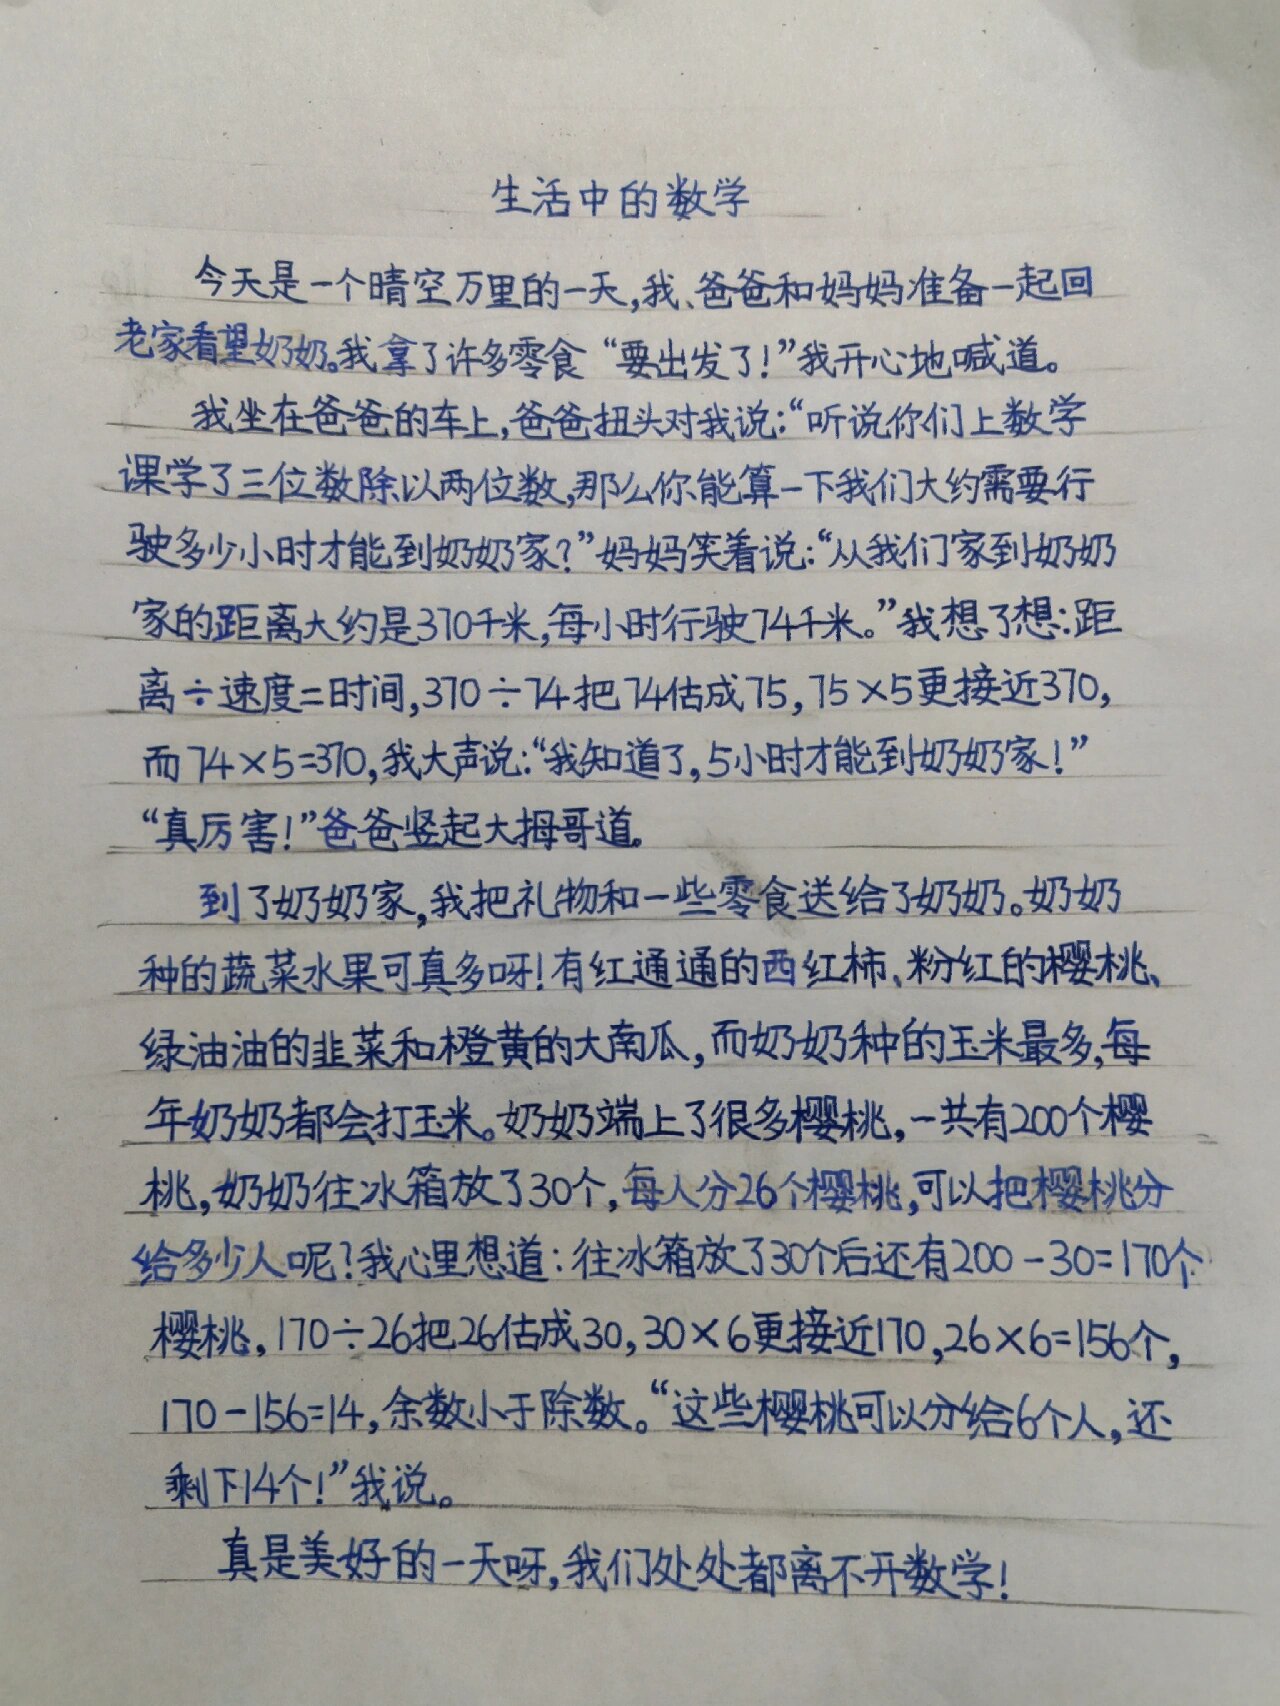 生活中的数学
今天是一个晴空万里的一天,我、爸爸和妈妈准备一起回
老家看望奶奶。我拿了许多零食“要出发了!”我开心地喊道。
我坐在爸爸的车上,爸爸扭头对我说:“听说你们上数学
课学了三位数除以两位数,那么你能算一下我们大约需要行
驶多少小时才能到奶奶家?”妈妈笑着说:“从我们家到奶奶
家的距离大约是370千米,每小时行驶74千米。”我想了想:距
离÷速度=时间,370÷74把74估成75,75×5更接近370,
而74×5=370,我大声说:“我知道了,5小时才能到奶奶家!”
“真厉害!”爸爸竖起大拇哥道。
到了奶奶家,我把礼物和一些零食送给了奶奶。奶奶
种的蔬菜水果可真多呀!有红通通的西红柿、粉红的樱桃、
绿油油的韭菜和橙黄的大南瓜,而奶奶种的玉米最多,每
年奶奶都会打玉米。奶奶端上了很多樱桃,一共有200个樱
桃,奶奶往冰箱放了30个,每人分26个樱桃,可以把樱桃分
给多少人呢?我心里想道:往冰箱放了30个后还有200-30=170个
樱桃,170÷26把26估成30,30×6更接近170,26×6=156个,
170-156=14,余数小于除数。“这些樱桃可以分给6个人,还
剩下14个!”我说。
真是美好的一天呀,我们处处都离不开数学!